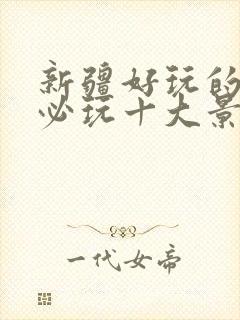 新疆好玩的
必玩十大景
一代女帝